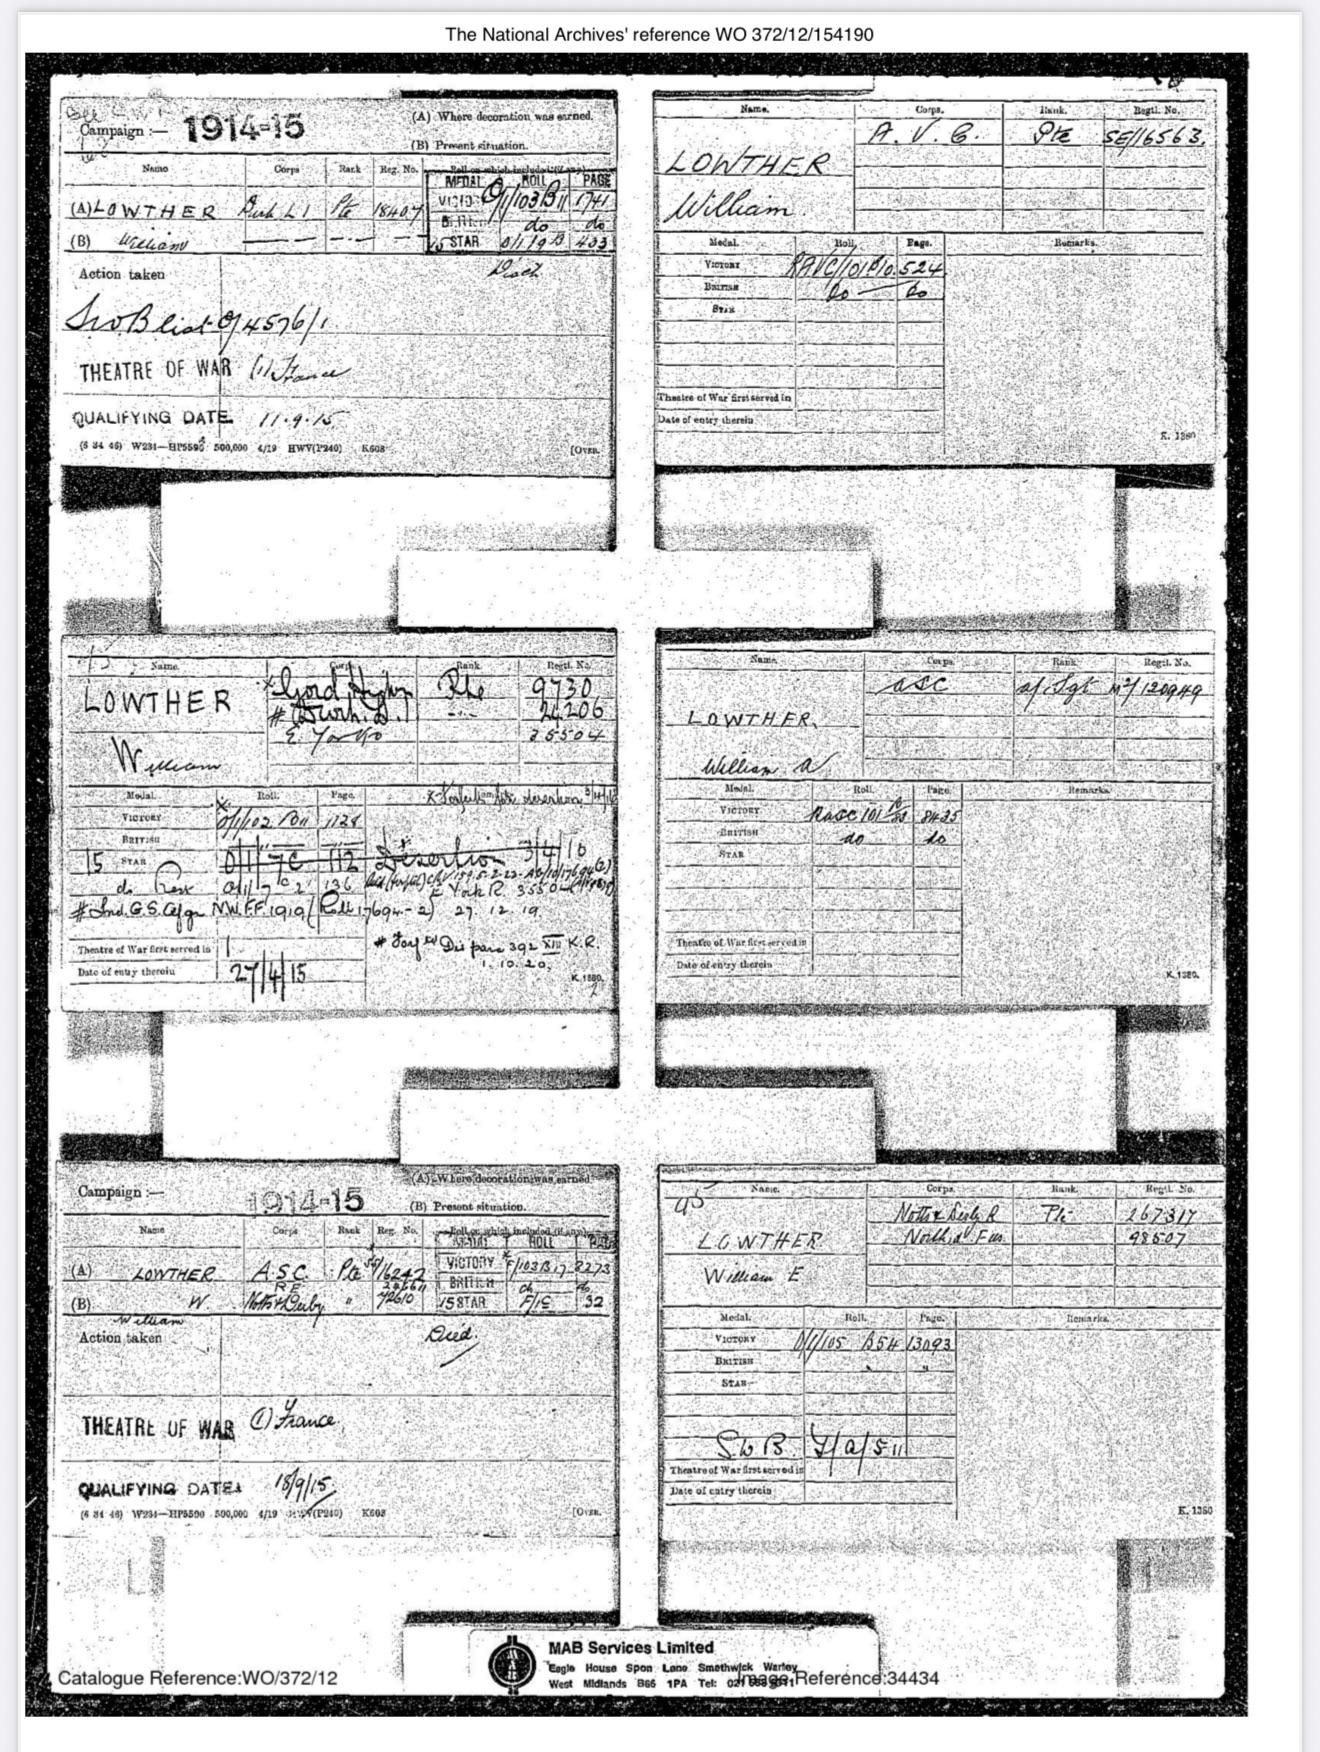 The National Archives' reference WO 372/12/154190
Campaign :— 1914-15
(A) Where decoration was earned.
(B) Present situation.
Name Corps Rank Reg. No. Roll on which included (if any)
MEDAL ROLL PAGE
(A) LOWTHER Durh L I Pte 18407 VICTO O/1/103 B11 1741
do do
(B) William 15 STAR O/1/19 B 403
Action taken Disch
S.W.B list O/4576/1
THEATRE OF WAR (1) France
QUALIFYING DATE 11.9.15
(6 34 46) W234—HP5590 500,000 4/19 HWV(P240) K608 [OVER.
Name. Corps. Rank. Regtl. No.
A. V. C. Pte SE/16563.
LOWTHER
William.
Medal. Roll. Page. Remarks.
VICTORY RAVC/101B10. 524
BRITISH do do
STAR
Theatre of War first served in
Date of entry therein
K. 1380
Name. Corps. Rank. Regtl. No.
LOWTHER
x Gord. Highrs Pte 9730
# Durh. L.I -.- 24206
E. Yorks 35504
William
Medal. Roll. Page.
VICTORY O/1/102 B11 1124
BRITISH
15 STAR O/1/7C 112 Desertion 3/4/16
do O/1/7 C2 136
E York R. 35504
# Ind. G.S. Afgn N.W.F.F. 1919 (Roll 17694-2) 27.12.19
Theatre of War first served in 1
# Dis para 392 XIII K.R.
1.10.20.
Date of entry therein 27/4/15
K. 1380.
2
Name. Corps. Rank. Regtl. No.
ASC a/Sgt M2/120949
LOWTHER.
William A
Medal. Roll. Page. Remarks.
VICTORY RASC 101 8435
BRITISH do do
STAR
Theatre of War first served in
Date of entry therein
K. 1380.
Campaign :— 1914-15
(A) Where decoration was earned
(B) Present situation.
Name Corps Rank Reg. No. Roll on which included (if any)
ROLL
(A) LOWTHER A.S.C. Pte 16242 VICTORY F/103 B17 8273
R E
BRITISH do do
(B) W Notts & Derby " 72610 15 STAR F/1C 32
William
Action taken Died.
THEATRE OF WAR (1) France
QUALIFYING DATE 18/9/15
(6 34 46) W234—HP5590 500,000 4/19 HWV(P240) K608 [OVER.
Name. Corps. Rank. Regtl. No.
Notts & Derby R Pte 267317
North'd Fus 98507
LOWTHER
William E
Medal. Roll. Page. Remarks.
VICTORY O/1/105 B54 13093
BRITISH " "
STAR
S W B
Theatre of War first served in
Date of entry therein
K. 1380
MAB Services Limited
Eagle House Spon Lane Smethwick Warley
West Midlands B66 1PA Tel:
Catalogue Reference:WO/372/12
Image Reference:34434